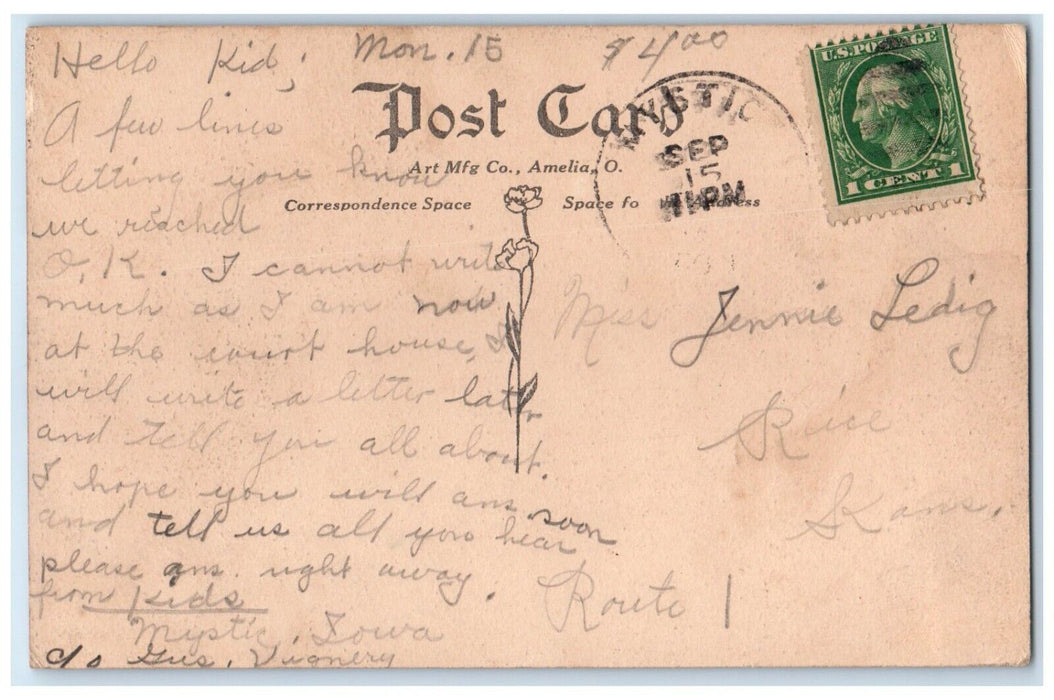 Hello Kid; Mon. 15 $4.00
A few lines
letting you know
we reached
O.K. I cannot write
much as I am now
at the court house, I
will write a letter later
and tell you all about.
I hope you will ans. soon
and tell us all you hear
please ans. right away.
from Kids
Mystic, Iowa
c/o Gus.
Post Card
Art Mfg Co., Amelia, O.
Correspondence Space
Space fo
MYSTIC
SEP
15
PM
U.S. POSTAGE
1 CENT 1
Miss Jennie Ledig
Rice
Kans.
Route 1